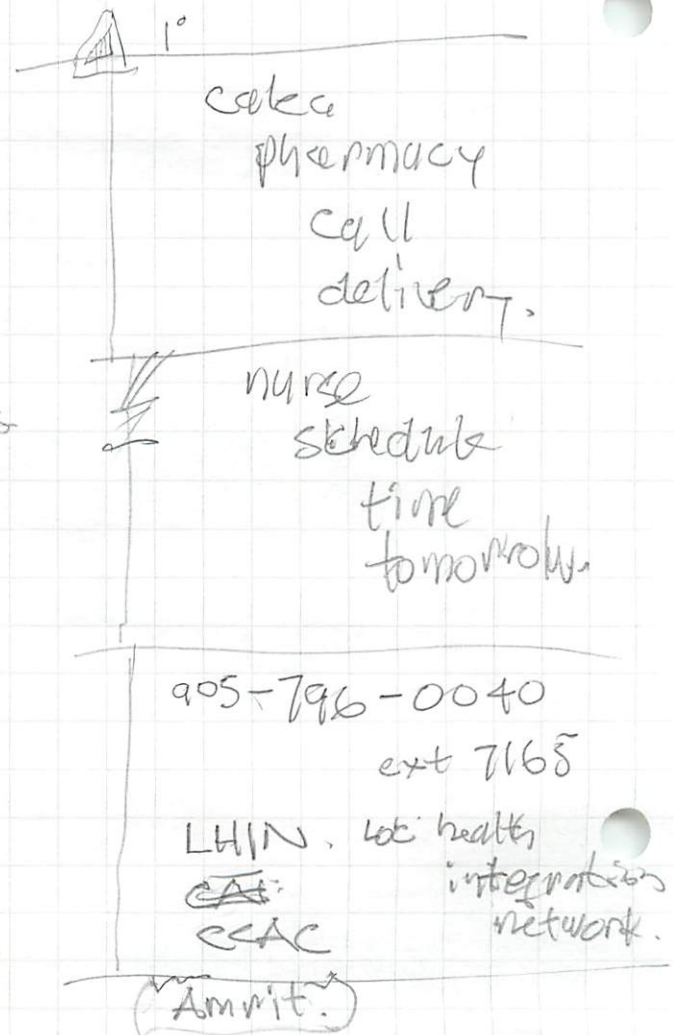 1°
calea
pharmacy
call
delivery.
nurse
schedule
time
tomorrow.
905-796-0040
ext 7165
LHIN. loc health
integration
CCAC network.
Amrit.